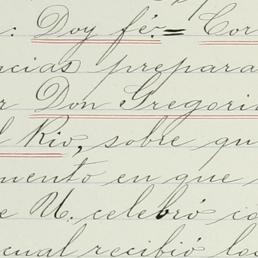 : Doy fé.= Cor
ncias prepara
r Don Gregori
l Rio, sobre qu
mento en que
e U. celebró co
cual recibió los